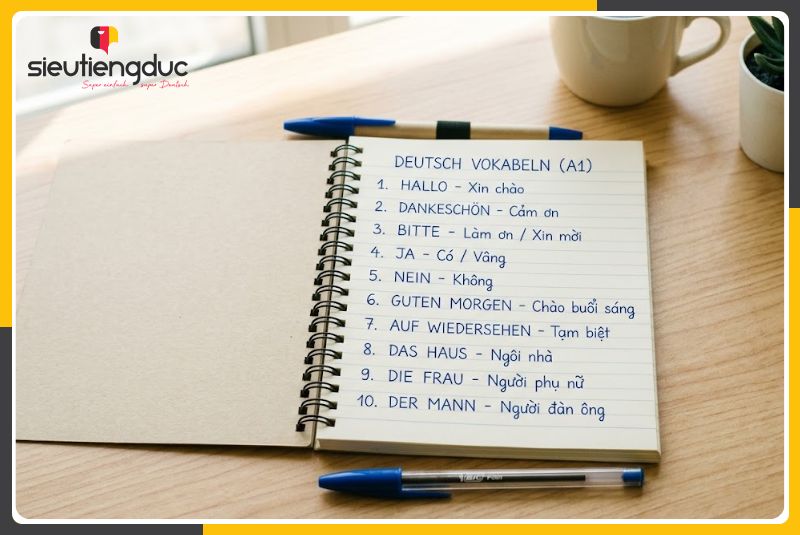 sieutiengduc
Super einfach - super Deutsch
DEUTSCH VOKABELN (A1)
1. HALLO - Xin chào
2. DANKESCHÖN - Cảm ơn
3. BITTE - Làm ơn / Xin mời
4. JA - Có / Vâng
5. NEIN - Không
6. GUTEN MORGEN - Chào buổi sáng
7. AUF WIEDERSEHEN - Tạm biệt
8. DAS HAUS - Ngôi nhà
9. DIE FRAU - Người phụ nữ
10. DER MANN - Người đàn ông
BIC